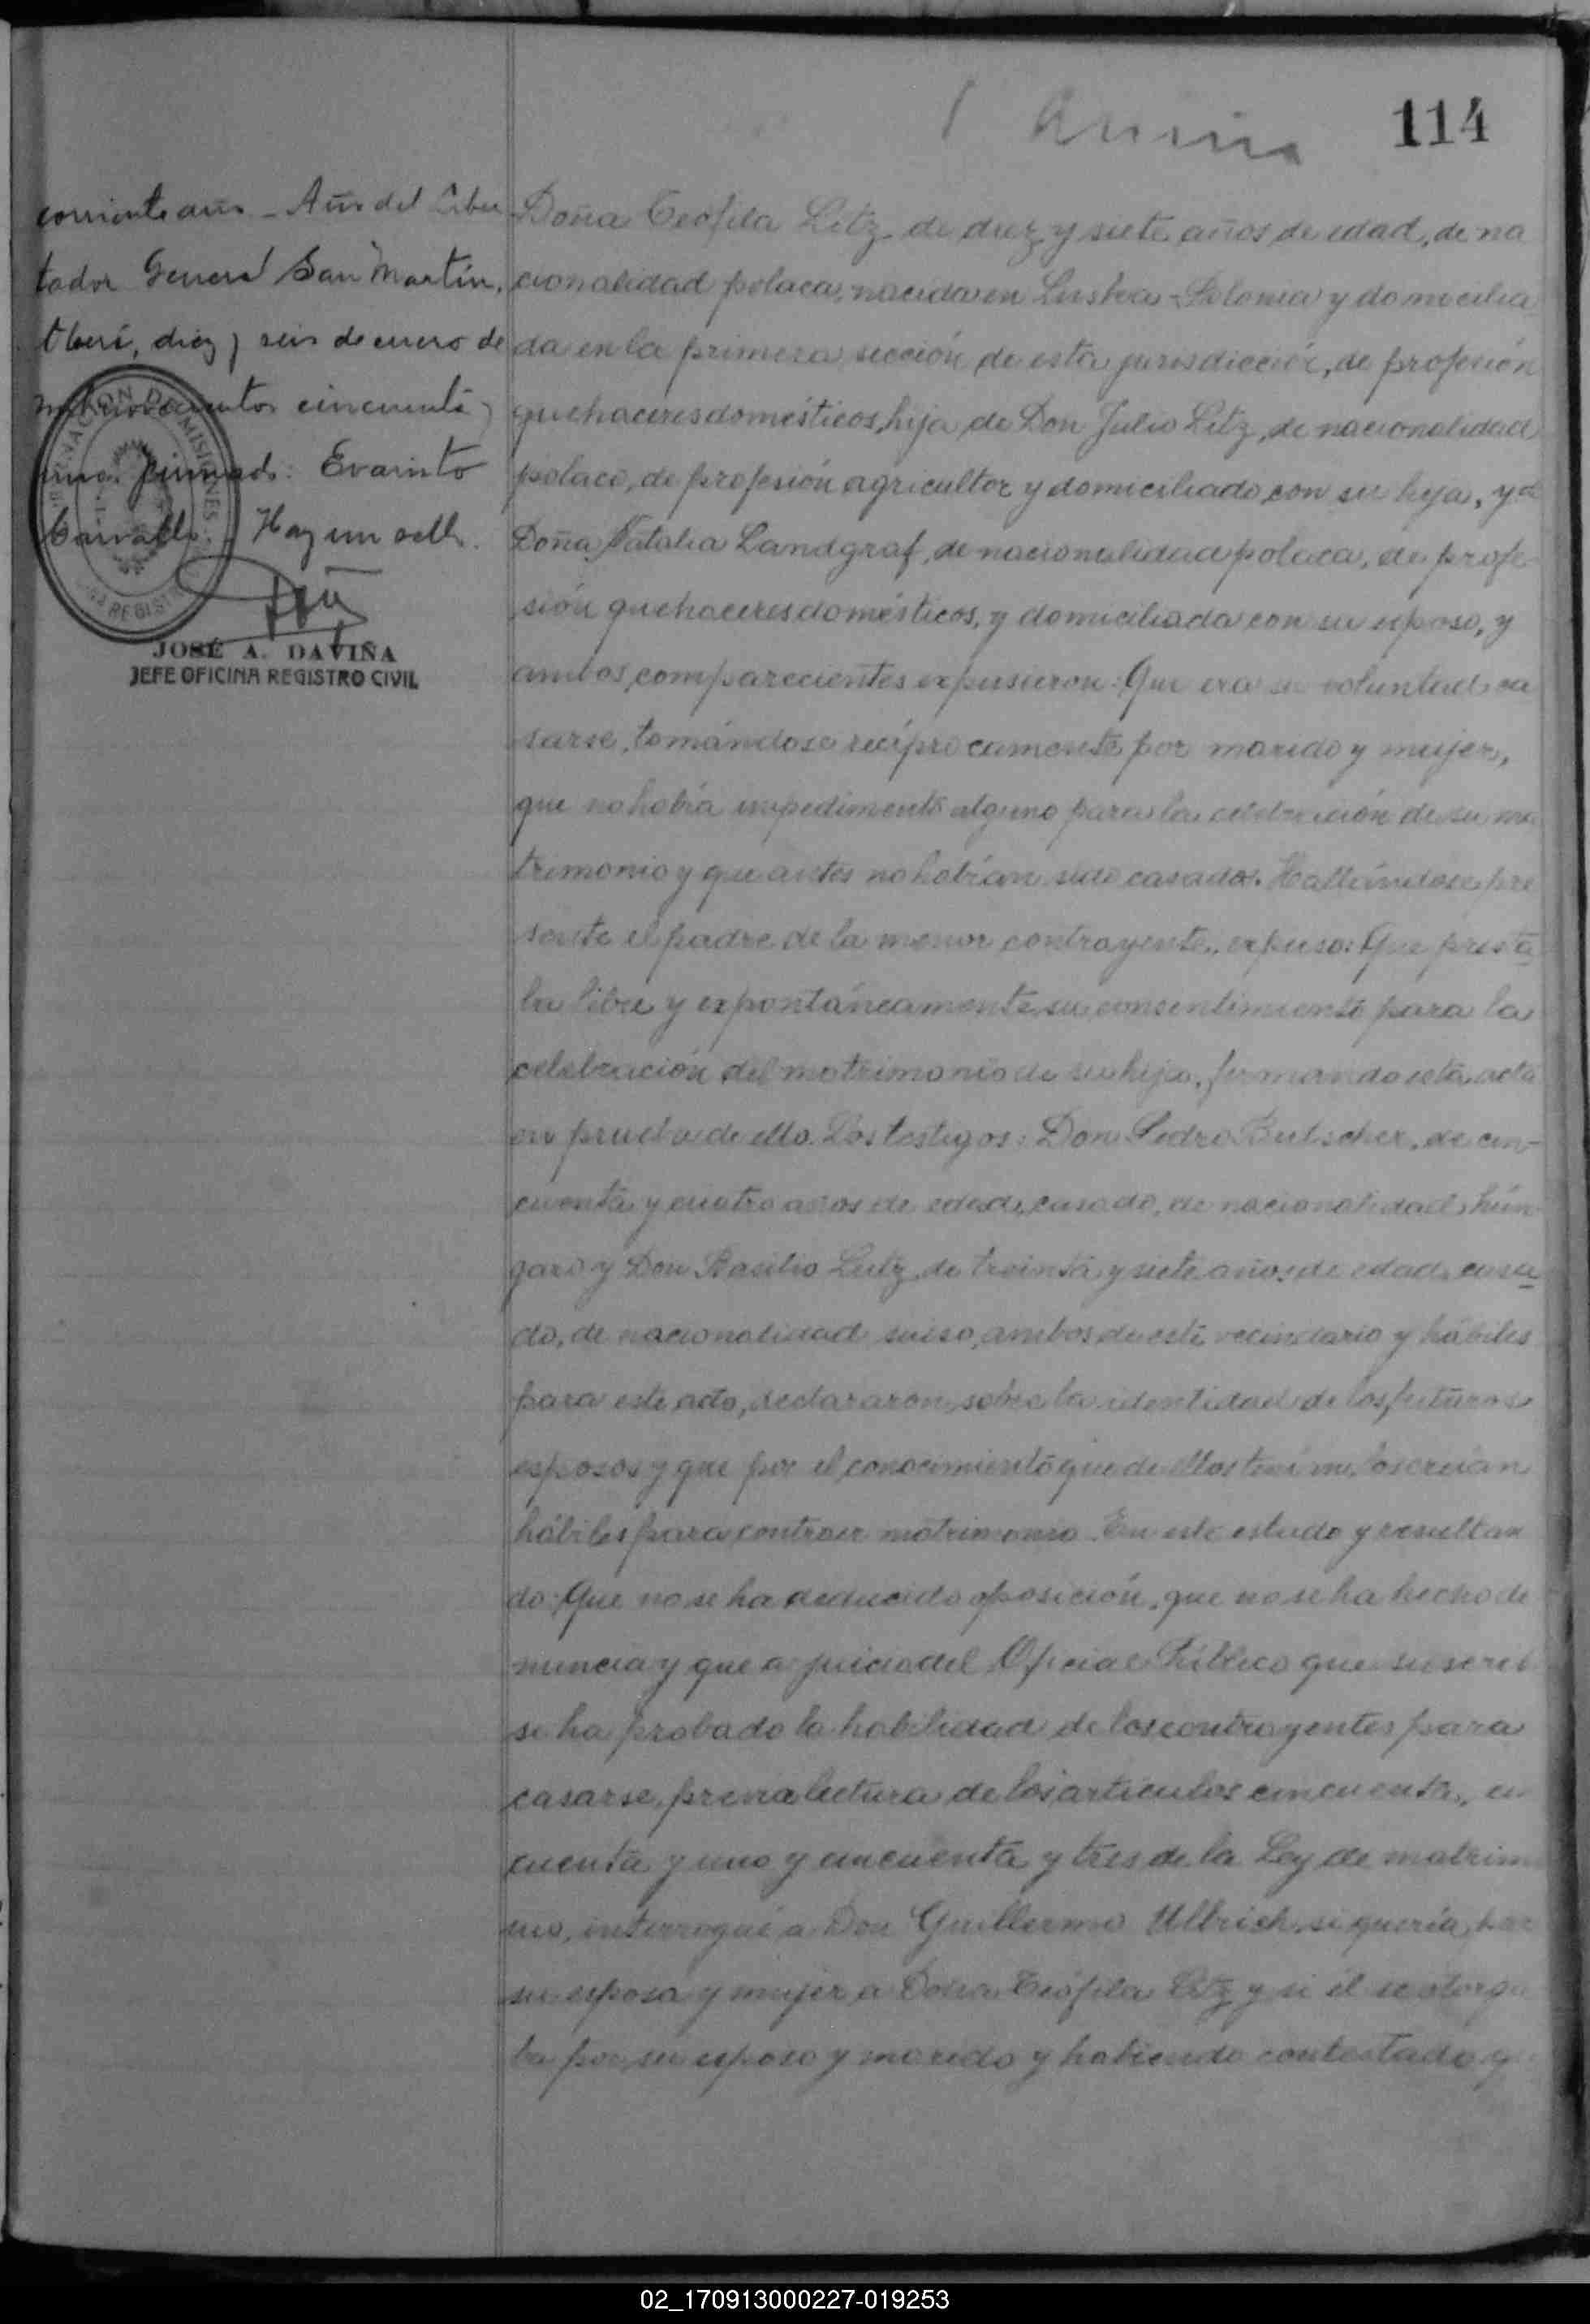 114
corriente año - Año del Liber
tador General San Martín.
Oberá, diez y seis de enero de
mil novecientos cincuenta y
uno. firmado: Evaristo
Carvallo. Hay un sello.
JOSÉ A. DAVIÑA
JEFE OFICINA REGISTRO CIVIL
Doña Teófila Litz de diez y siete años de edad, de na
cionalidad polaca, nacida en Polonia y domicilia
da en la primera sección de esta jurisdicción, de profesión
quehaceres domésticos, hija de Don Julio Litz, de nacionalidad
polaco, de profesión agricultor y domiciliado con su hija, y de
Doña Natalia Landgraf, de nacionalidad polaca, de profe-
sión quehaceres domésticos, y domiciliada con su esposo, y
ambos comparecientes expusieron: Que era su voluntad ca
sarse, tomándose recíprocamente por marido y mujer,
que no había impedimento alguno para la celebración de su ma
trimonio y que antes no habían sido casados. Hallándose pre
sente el padre de la menor contrayente, expuso: Que presta
ba libre y expontáneamente su consentimiento para la
celebración del matrimonio de su hija, firmando esta acta
en prueba de ello. Los testigos: Don Pedro Butscher, de cin-
cuenta y cuatro años de edad, casado, de nacionalidad hún
garo y Don Basilio Lutz, de treinta y siete años de edad, casa
do, de nacionalidad suiso, ambos de este vecindario y hábiles
para este acto, declararon sobre la identidad de los futuros
esposos y que por el conocimiento que de ellos tenían, los creían
hábiles para contraer matrimonio. En este estado y resultan
do: Que no se ha deducido oposición, que no se ha hecho de
nuncia y que a juicio del Oficial Público que suscribe
se ha probado la habilidad de los contrayentes para
casarse, previa lectura de los artículos cincuenta, cin
cuenta y uno y cincuenta y tres de la Ley de matrimo
nio, interrogué a Don Guillermo Ullrich, si quería por
su esposa y mujer a Doña Teófila Litz y si él se otorga
ba por su esposo y marido y habiendo contestado q
02_170913000227-019253